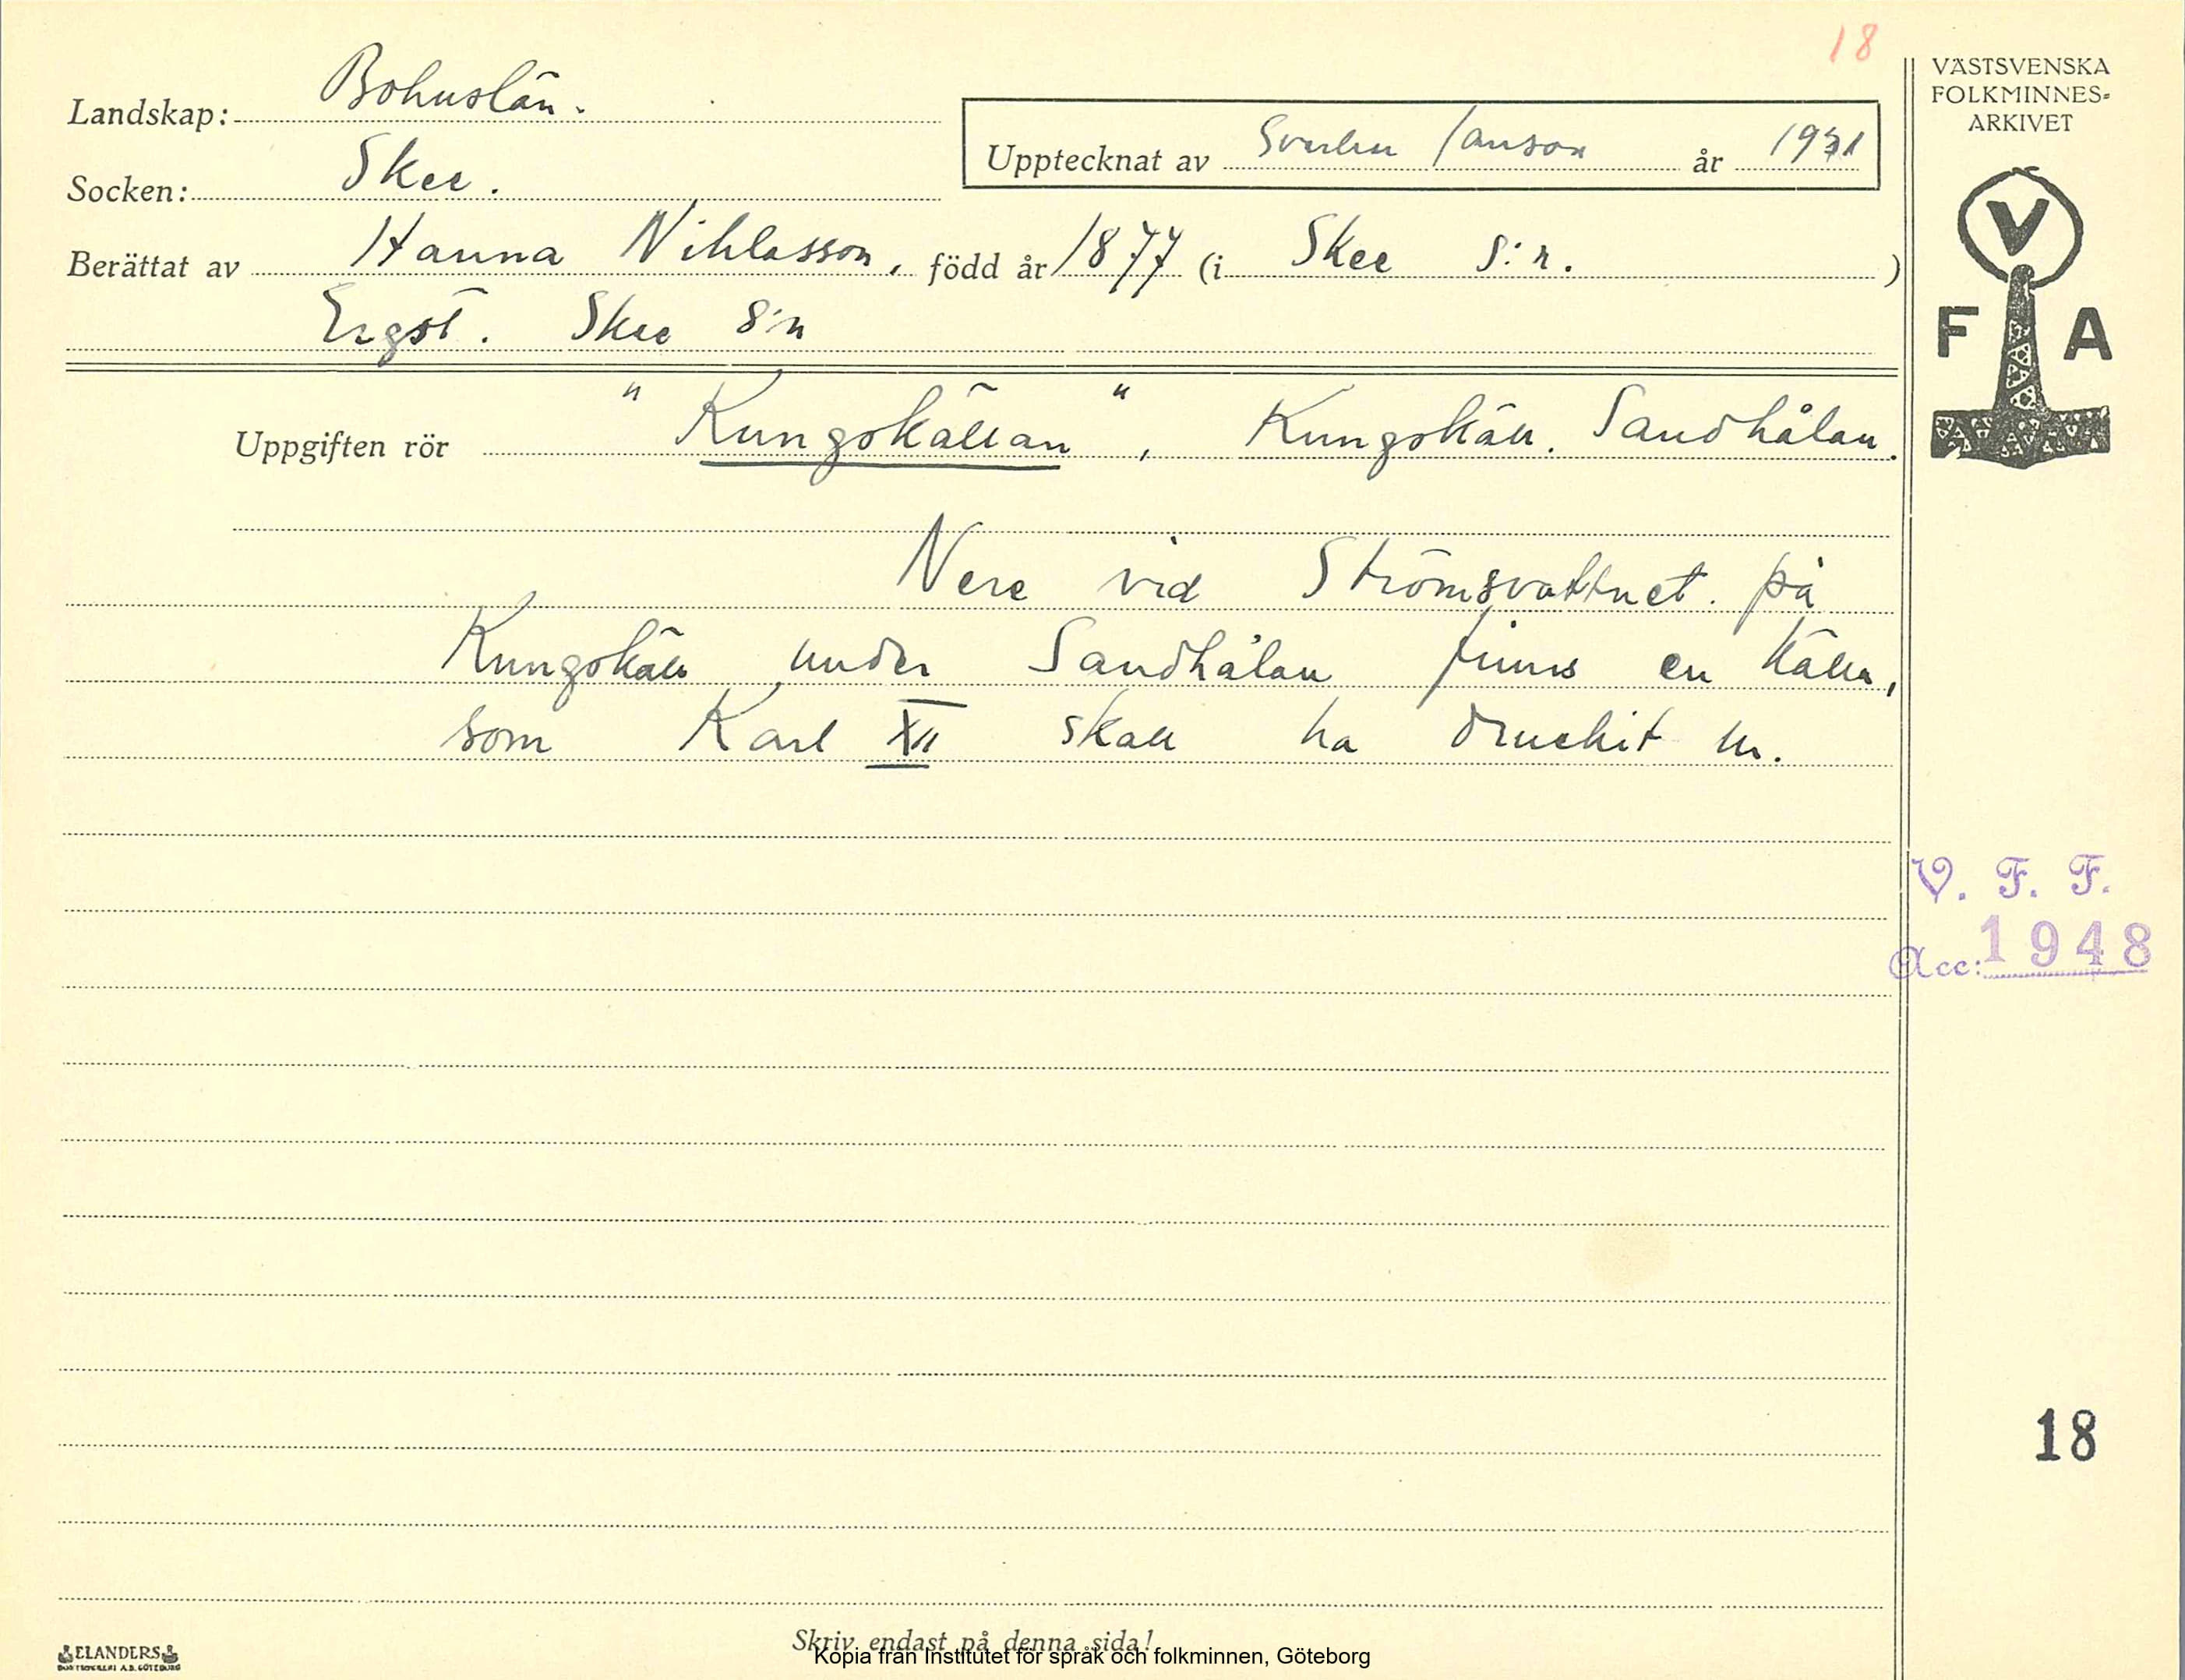 18
VÄSTSVENSKA
FOLKMINNES-
ARKIVET
Landskap: Bohuslän.
Upptecknat av Sverker Janson år 1931
Socken: Skee.
Berättat av Hanna Nihlasson, född år 1877 (i Skee s:n.)
Ergst. Skee s:n
V
F A
Uppgiften rör "Kungskällan", Kungskäll. Sandhålan.
Nere vid Strömsvattnet på
Kungskäll under Sandhålan finns en källa,
som Karl XII skall ha druckit ur.
V. F. F.
Acc: 1948
18
Skriv endast på denna sida!
Kopia från Institutet för språk och folkminnen, Göteborg
ELANDERS
BOKTRYCKERI A.B. GÖTEBORG